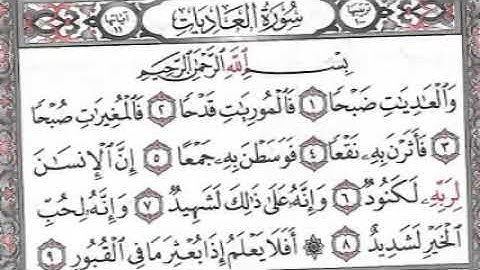 ترتيبها ١٠٠
سُورَةُ الْعَادِيَاتِ
آياتها ١١
بِسْمِ اللَّهِ الرَّحْمَٰنِ الرَّحِيمِ
وَالْعَادِيَاتِ ضَبْحًا ١ فَالْمُورِيَاتِ قَدْحًا ٢ فَالْمُغِيرَاتِ صُبْحًا
٣ فَأَثَرْنَ بِهِ نَقْعًا ٤ فَوَسَطْنَ بِهِ جَمْعًا ٥ إِنَّ الْإِنسَانَ
لِرَبِّهِ لَكَنُودٌ ٦ وَإِنَّهُ عَلَىٰ ذَٰلِكَ لَشَهِيدٌ ٧ وَإِنَّهُ لِحُبِّ
الْخَيْرِ لَشَدِيدٌ ٨ ۞ أَفَلَا يَعْلَمُ إِذَا بُعْثِرَ مَا فِي الْقُبُورِ ٩